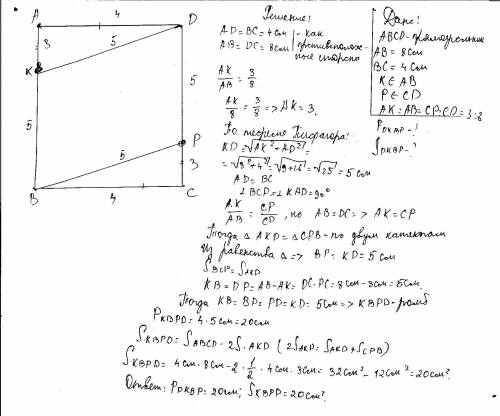 A 4 D
3
5
K
5
5
P
5
3
B 4 C
Решение:
AD=BC=4см - как
AB=DC=8см противополож-
ные стороны
AK/AB = 3/8
AK/8 = 3/8 => AK=3.
По теореме Пифагора:
KD=√AK²+AD²=
=√3²+4²=√9+16=√25=5см
AD=BC
∠BCP=∠KAD=90°
AK/AB = CP/CD, но AB=DC=> AK=CP
Тогда △AKD=△CPB-по двум катетам
Из равенства △=> BP=KD=5см
S BCP=S AKD
KB=DP=AB-AK=DC-PC=8см-3см=5см.
Тогда KB=BP=PD=KD=5см=>KBPD-ромб
P KBPD=4·5см=20см
S KBPD=S ABCD-2S·AKD (2S AKD=S AKD+S CPB)
S KBPD=4см·8см-2·1/2·4см·3см=32см²-12см²=20см².
Ответ: P DKBP=20см; S KBPD=20см².
Дано:
ABCD-прямоугольник
AB=8см
BC=4см
K∈AB
P∈CD
AK:AB=CP:CD=3:8
P DKBP-?
S DKBP-?